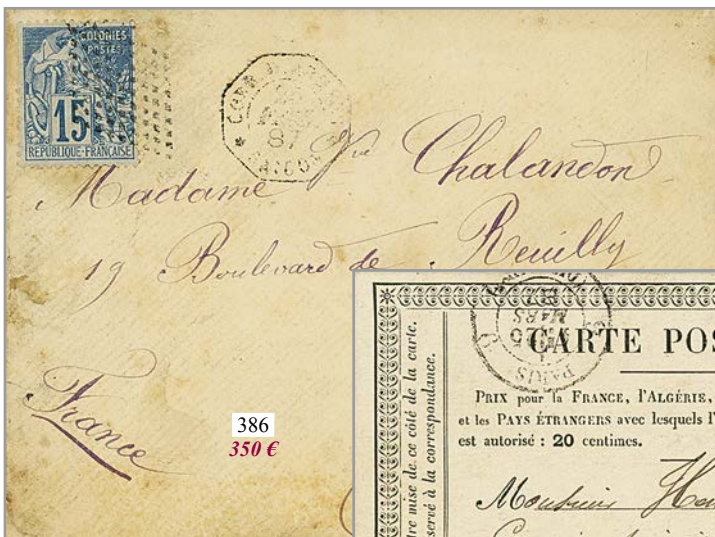 COLONIES
POSTES
15
REPUBLIQUE FRANÇAISE
87
Madame Vve Chalandon
19 Boulevard de Reuilly
France
386
350 €
PARIS
MARS
CARTE POS
PRIX pour la FRANCE, l'ALGÉRIE,
et les PAYS ÉTRANGERS avec lesquels l'
est autorisé : 20 centimes.
tre mise de ce côté de la carte.
servé à la correspondance.
Monsieur